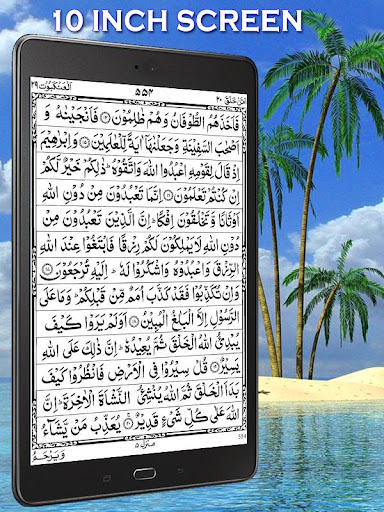 10 INCH SCREEN
امن خلق ٢٠ ٥٥٤ العنكبوت ٢٩
فَاَخَذَهُمُ الطُّوْفَانُ وَهُمْ ظٰلِمُوْنَ ۝ فَاَنْجَيْنٰهُ وَ
اَصْحٰبَ السَّفِيْنَةِ وَجَعَلْنٰهَاۤ اٰيَةً لِّلْعٰلَمِيْنَ ۝ وَاِبْرٰهِيْمَ
اِذْ قَالَ لِقَوْمِهِ اعْبُدُوا اللّٰهَ وَاتَّقُوْهُ ؕ ذٰلِكُمْ خَيْرٌ لَّكُمْ
اِنْ كُنْتُمْ تَعْلَمُوْنَ ۝ اِنَّمَا تَعْبُدُوْنَ مِنْ دُوْنِ اللّٰهِ
اَوْثَانًا وَّتَخْلُقُوْنَ اِفْكًا ؕ اِنَّ الَّذِيْنَ تَعْبُدُوْنَ مِنْ
دُوْنِ اللّٰهِ لَا يَمْلِكُوْنَ لَكُمْ رِزْقًا فَابْتَغُوْا عِنْدَ اللّٰهِ
الرِّزْقَ وَاعْبُدُوْهُ وَاشْكُرُوْا لَهٗ ؕ اِلَيْهِ تُرْجَعُوْنَ ۝
وَاِنْ تُكَذِّبُوْا فَقَدْ كَذَّبَ اُمَمٌ مِّنْ قَبْلِكُمْ ؕ وَمَا عَلَى
الرَّسُوْلِ اِلَّا الْبَلٰغُ الْمُبِيْنُ ۝ اَوَلَمْ يَرَوْا كَيْفَ
يُبْدِئُ اللّٰهُ الْخَلْقَ ثُمَّ يُعِيْدُهٗ ؕ اِنَّ ذٰلِكَ عَلَى اللّٰهِ
يَسِيْرٌ ۝ قُلْ سِيْرُوْا فِى الْاَرْضِ فَانْظُرُوْا كَيْفَ
بَدَاَ الْخَلْقَ ثُمَّ اللّٰهُ يُنْشِئُ النَّشْاَةَ الْاٰخِرَةَ ؕ اِنَّ
اللّٰهَ عَلٰى كُلِّ شَىْءٍ قَدِيْرٌ ۝ يُعَذِّبُ مَنْ يَّشَآءُ
منزل ٥
554
وَيَرْحَمُ